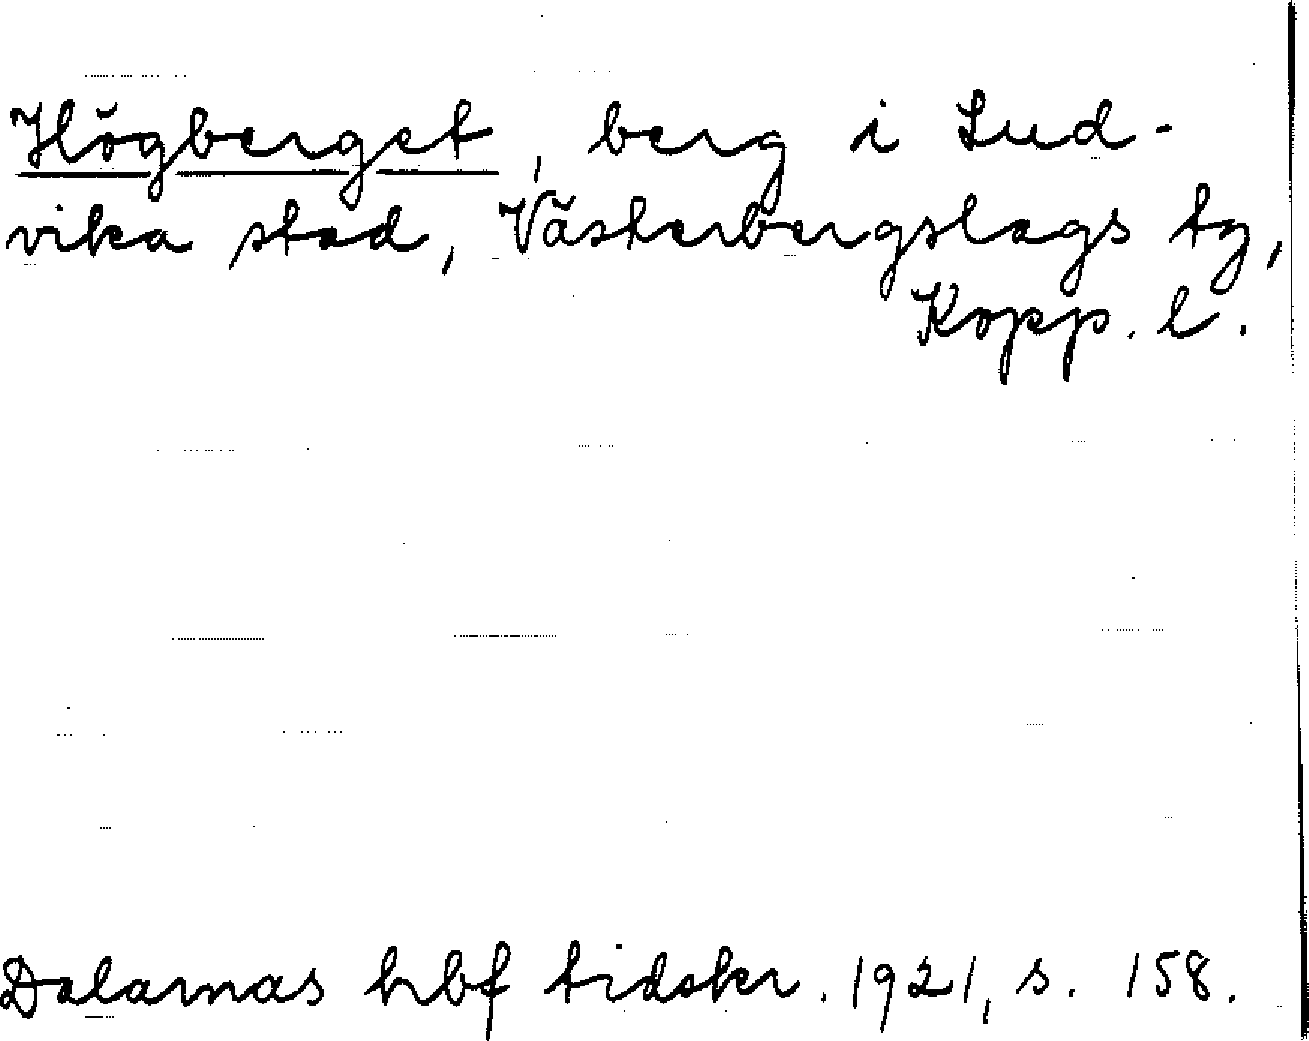 Högberget, berg i Lud-
vika stad, Västerbergslags tg,
Kopp. l.
Dalarnas hbf tidskr. 1921, s. 158.